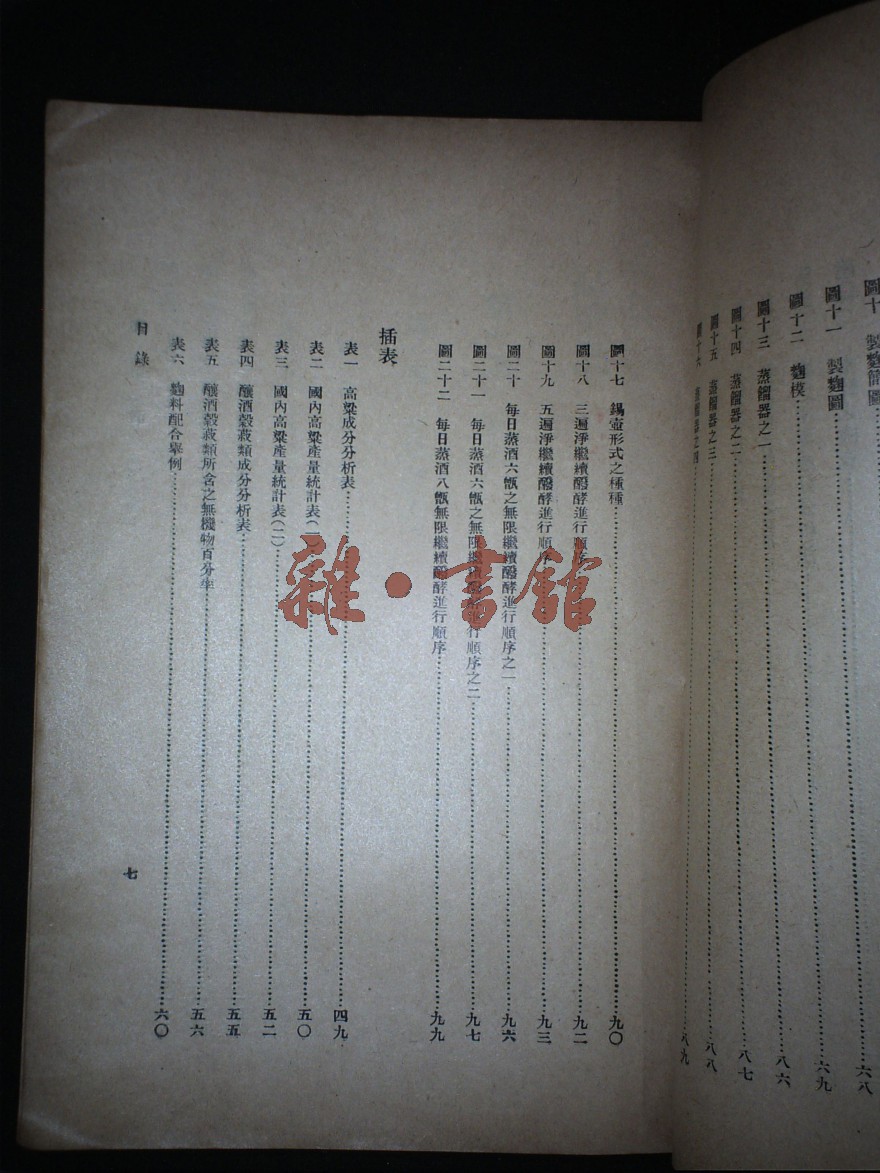 圖十 製麴龍圖……六八
圖十一 製麴圖……六九
圖十二 麴模……八六
圖十三 蒸餾器之一……八七
圖十四 蒸餾器之二……八八
圖十五 蒸餾器之三……八九
圖十六 蒸餾器之四
圖十七 錫壺形式之種種……九〇
圖十八 三遍淨繼續醱酵進行順序……九二
圖十九 五遍淨繼續醱酵進行順序……九三
圖二十 每日蒸酒六甑之無限繼續醱酵進行順序之一……九六
圖二十一 每日蒸酒六甑之無限繼續醱酵進行順序之二……九七
圖二十二 每日蒸酒八甑無限繼續醱酵進行順序……九九
插表
表一 高粱成分分析表……四九
表二 國內高粱產量統計表(一)……五〇
表三 國內高粱產量統計表(二)……五二
表四 釀酒穀菽類成分分析表……五五
表五 釀酒穀菽類所含之無機物百分率……五六
表六 麴料配合舉例……六〇
目錄
七
雜·書館